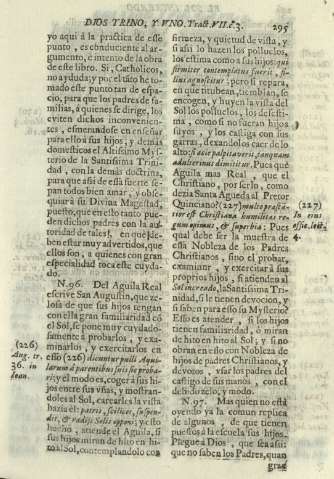 DIOS TRINO, Y VNO. Tract. VII. §. 3. 295
yo aqui à la practica de este
punto, es conducente al ar-
gumento, è intento de la obra
de este libro. Si, Catholicos,
no ay duda; y por esto he to-
mado este punto tan de espa-
cio, para que los padres de fa-
milias, à quienes se dirige, los
eviten dichos inconvenien-
tes, esmerandose en enseñar
para ello à sus hijos, y demàs
domesticos el Altissimo My-
sterio de la Santissima Trini-
dad, con la demàs doctrina,
para que assi de essa suerte se-
pan todos bien amar, y obse-
quiar à su Divina Magestad,
puesto, que en ello tanto pue-
den dichos padres con la au-
toridad de tales, en que de-
ben estar muy advertidos, que
ellos son, a quienes con gran
especialidad toca este cuyda-
do.
N. 96. Del Aguila Real
escrive San Augustin, que ze-
losa de que sus hijos tengan
con ella gran familiaridad cõ
el Sol, se pone muy cuydado-
samente à probarlos, y exa-
minarlos, y exercitarlos en
esso (226) dicuntur pulli Aqui-
larum à parentibus suis sic proba-
ri; y el modo es, coger à sus hi-
jos entre sus vñas, y mostran-
doles al Sol, carearles la vista
hazia èl: patris, scilicet, suspen-
dit, & radijs Solis opponi; y esto
hecho, atiende el Aguila, si
sus hijos miran de hito en hi-
to al Sol, contemplandolo con
(226)
Aug. tr.
36. in
Ioan.
firmeza, y quietud de vista, y
si assi lo hazen los polluelos,
los estima como à sus hijos: qui
firmiter contemplatus fuerit, fi-
lius agnoscitur; pero si repara,
en que titubean, tiemblan, se
encogen, y huyen la vista del
Sol los polluelos, los desesti-
ma, como si no fueran hijos
suyos, y los castiga con sus
garras, dexandolos caer de lo
alto: si acie palpitaverit, tanquam
adulterinus dimittitur. Pues què
Aguila mas Real, que el
Christiano, por serlo, como
dezia Santa Agueda al Pretor
Quinciano? (227) multo præsta-
tior est Christiana humilitas re-
gum opibus, & superbia: Pues
qual debe ser la muestra de
esta Nobleza de los Padres
Christianos, sino el probar,
examinar, y exercitar à sus
proprios hijos, si atienden al
Sol increado, la Santissima Tri-
nidad, si le tienen devocion, y
si saben para esso su Mysterio?
Esso es atender, si los hijos
tienen familiaridad, ò miran
de hito en hito al Sol; y si no
obran en esso con Nobleza de
hijos de padres Christianos, y
devotos, vsar los padres del
castigo de sus manos, con el
debido zelo, y modo.
(227)
In eius
offic. lect.
4.
N. 97. Mas quien no està
oyendo ya la comun replica
de algunos, de que tienen
puestos à la escuela sus hijos.
Plegue à Dios, que sea assi:
que no saben los Padres, quan
gran